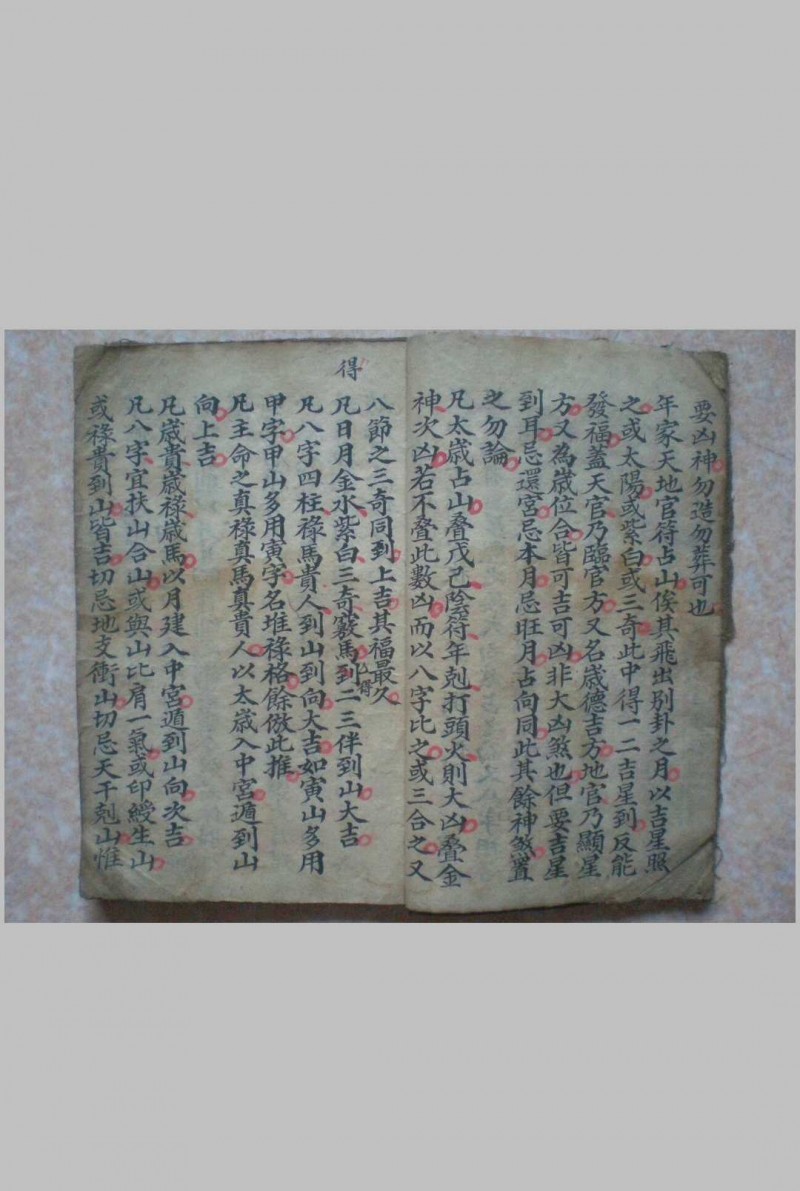 要凶神勿造勿葬可也
年家天地官符占山俟其飛出别卦之月以吉星照
之或太陽或紫白或三奇此中得一二吉星到反能
發福蓋天官乃臨官方又名歲德吉方地官乃顯星
方又為歲位合皆可吉可凶非大凶煞也但要吉星
到耳忌還宮忌本月忌旺月占向同此其餘神煞置
之勿論
凡太歲占山叠戊己陰符年剋打頭火則大凶叠金
神次凶若不叠此數凶而以八字比之或三合之又
得
八節之三奇同到上吉其福最久
凡日月金水紫白三奇竅馬到山向二三伴到山大吉
凡八字四柱祿馬貴人到山到向大吉如寅山多用
甲字甲山多用寅字名堆祿格餘倣此推
凡主命之真祿真馬真貴人以太歲入中宮遁到山
向上吉
凡歲貴歲祿歲馬以月建入中宮遁到山向次吉
凡八字宜扶山合山或與山比肩一氣或印綬生山
或祿貴到山皆吉切忌地支衝山切忌天干剋山惟